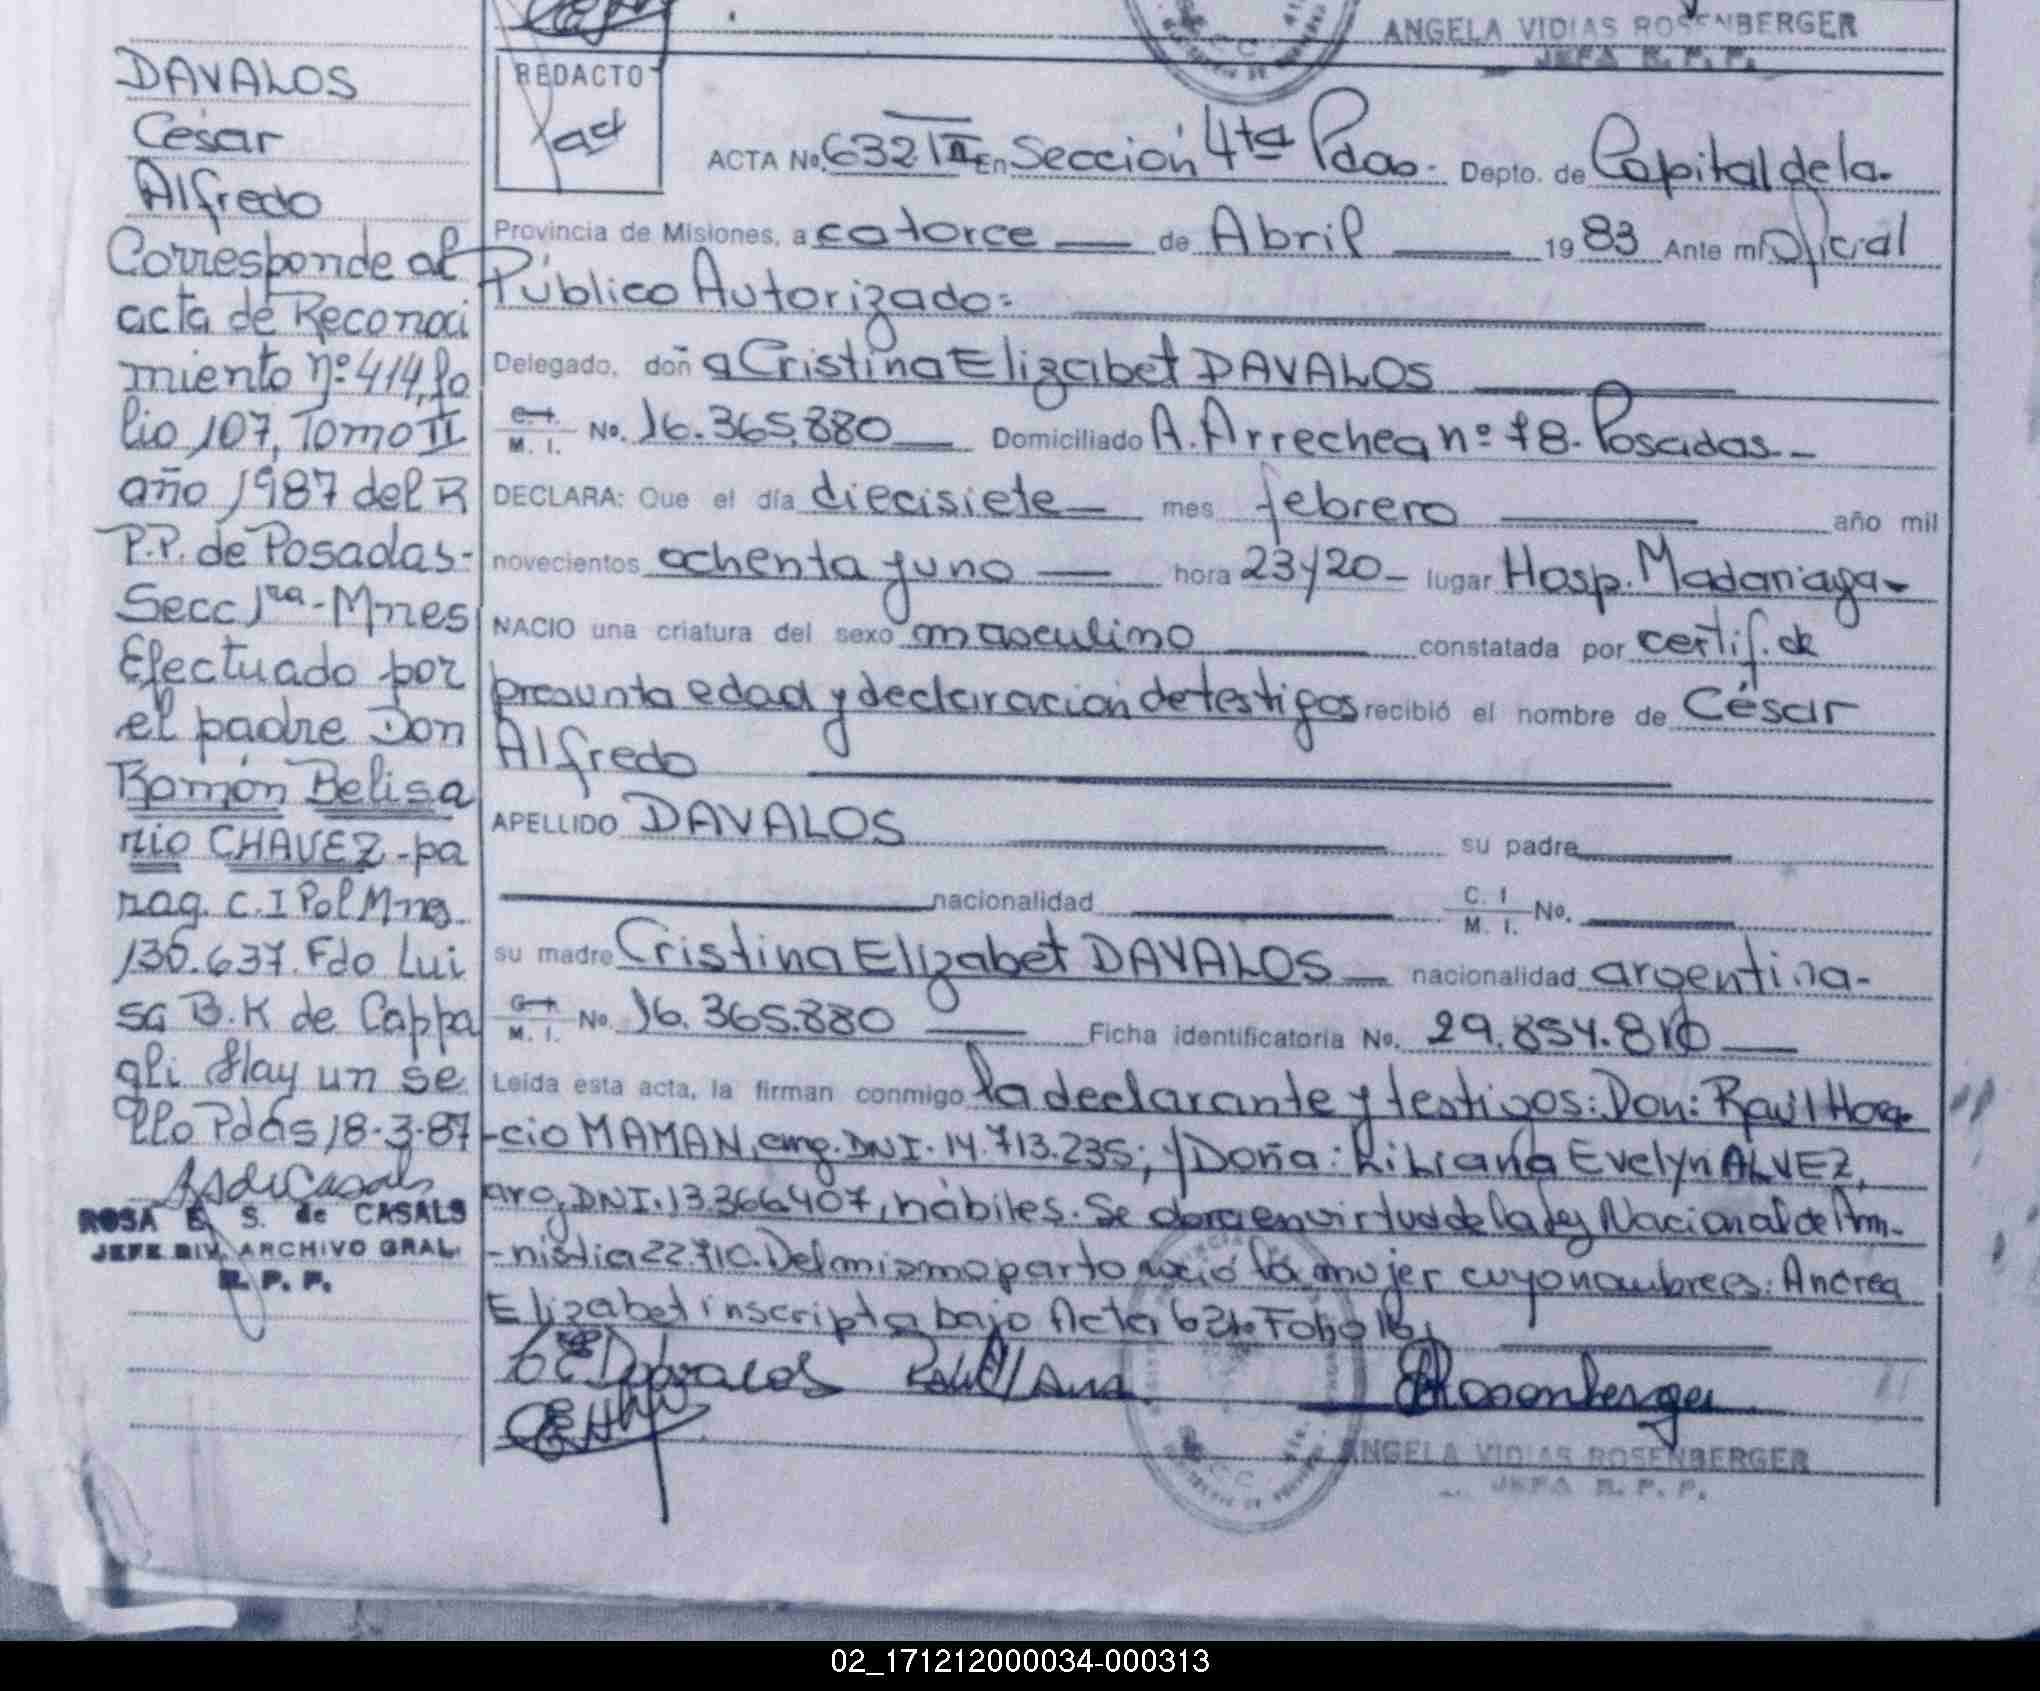 ANGELA VIDIAS ROSENBERGER
JEFA R. P. P.
DAVALOS
César
Alfredo
Corresponde al
acta de Reconoci
miento nº 414, fo
lio 107, Tomo II
año 1987 del R
P.P. de Posadas-
Secc 1ra - Mnes
Efectuado por
el padre Don
Ramón Belisa
rio CHAVEZ - pa
rag. C.I Pol Mnes.
130.637. Fdo Lui
sa B.K de Cappa
gli Hay un se
llo Pdas 18-3-87
ROSA E. S. de CASALS
JEFE DIV. ARCHIVO GRAL.
R. P. P.
REDACTO
ACTA No. 632 En Sección 4ta Pdas. Depto. de Capital de la
Provincia de Misiones, a catorce de Abril 1983 Ante mí Oficial
Público Autorizado:
Delegado, doña Cristina Elizabet DAVALOS
C. I. M. I. No. 16.365.880 Domiciliado A. Arrechea nº 78. Posadas
DECLARA: Que el día diecisiete mes febrero año mil
novecientos ochenta y uno hora 23y20 lugar Hosp. Madariaga
NACIO una criatura del sexo masculino constatada por certif. de
presunta edad y declaración de testigos recibió el nombre de César
Alfredo
APELLIDO DAVALOS su padre
nacionalidad C. I. M. I. No.
su madre Cristina Elizabet DAVALOS nacionalidad argentina
C. I. M. I. No. 16.365.880 Ficha identificatoria No. 29.854.810
Leída esta acta, la firman conmigo la declarante y testigos: Don: Raúl Hora
-cio MAMAN, arg. DNI. 14.713.235; y Doña: Liliana Evelyn ALVEZ,
arg. DNI. 13.366.407, hábiles. Se labra en virtud de la ley Nacional de Am-
-nistia 22.710. Del mismo parto nació la mujer cuyo nombre es: Andrea
Elizabet inscripta bajo Acta 631 Folio 16
Davalos
Rosenberger
ANGELA VIDIAS ROSENBERGER
JEFA R. P. P.
02_171212000034-000313